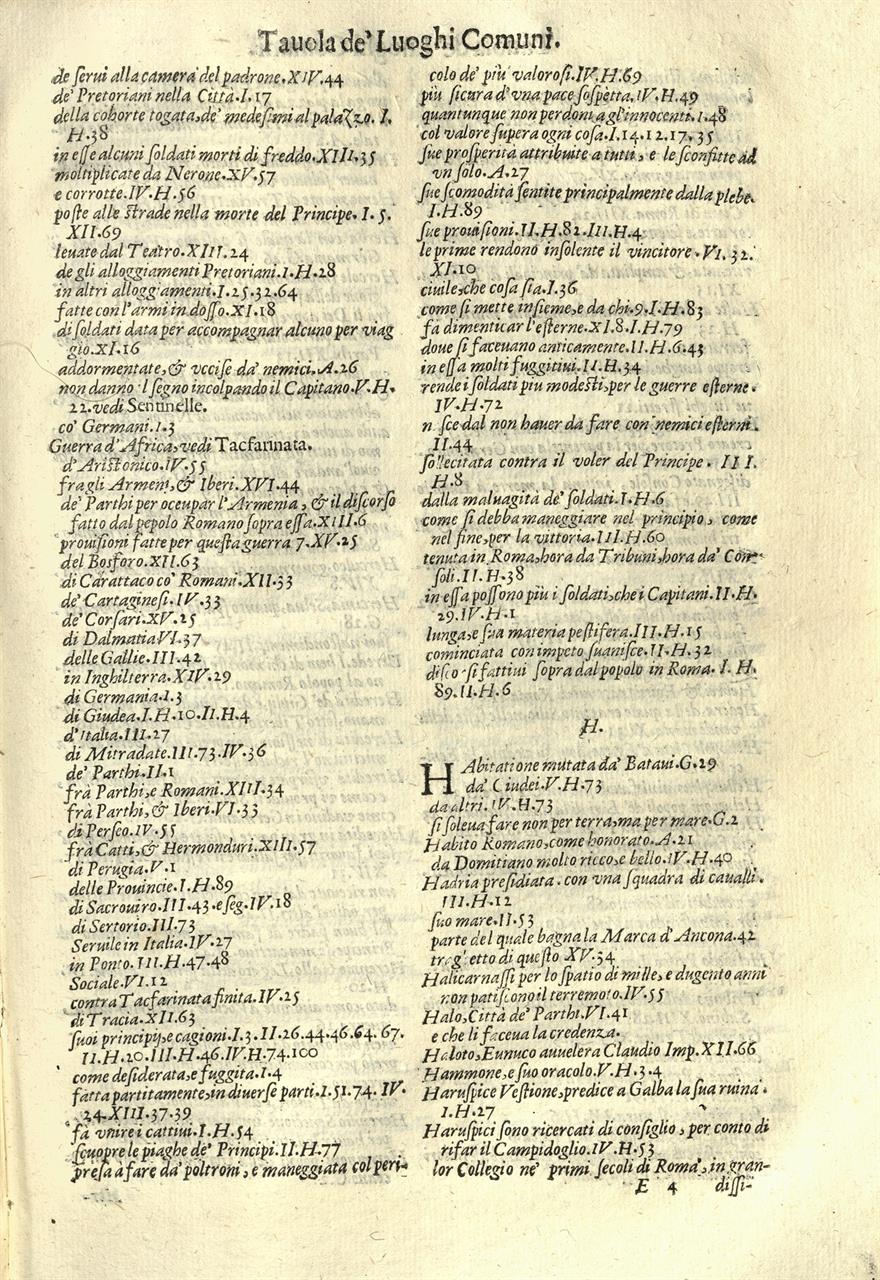 Tauola de' Luoghi Comuni.
de serui alla camera del padrone.XIV.44
de' Pretoriani nella Città.I.17
della cohorte togata,de' medesimi al palazzo. I.
H.38
in esse alcuni soldati morti di freddo.XIII.35
moltiplicate da Nerone.XV.57
e corrotte.IV.H.56
poste alle strade nella morte del Principe. I. 5.
XII.69
leuate dal Teatro.XIII.24
de gli alloggiamenti Pretoriani.I.H.28
in altri alloggiamenti.I.25.32.64
fatte con l'armi in dosso.XI.18
di soldati data per accompagnar alcuno per viag
gio.XI.16
addormentate,& vccise da' nemici.A.26
non danno 'l segno incolpando il Capitano.V.H.
22.vedi Sentinelle.
co' Germani.I.3
Guerra d'Africa,vedi Tacfarinata.
d'Aristonico.IV.55
fra gli Armeni,& Iberi.XVI.44
de' Parthi per occupar l'Armenia, & il discorso
fatto dal popolo Romano sopra essa.XIII.6
prouisioni fatte per questa guerra 7.XV.25
del Bosforo.XII.63
di Carattaco co' Romani.XII.33
de' Cartaginesi.IV.33
de' Corsari.XV.25
di Dalmatia VI.37
delle Gallie.III.42
in Inghilterra.XIV.29
di Germania.I.3
di Giudea.I.H.10.II.H.4
d'Italia.III.27
di Mitradate.III.73.IV.36
de' Parthi.II.1
frà Parthi,e Romani.XIII.34
frà Parthi,& Iberi.VI.33
di Perseo.IV.55
frà Catti,& Hermonduri.XIII.57
di Perugia.V.1
delle Prouincie.I.H.89
di Sacrouiro.III.43.e seg.IV.18
di Sertorio.III.73
Seruile in Italia.IV.27
in Ponto.III.H.47.48
Sociale.VI.12
contra Tacfarinata finita.IV.25
di Tracia.XII.63
suoi principij,e cagioni.I.3.II.26.44.46.64.67.
II.H.20.III.H.46.IV.H.74.100
come desiderata,e fuggita.I.4
fatta partitamente,in diuerse parti.I.51.74. IV.
24.XIII.37.39
fa vnire i cattiui.I.H.54
scuopre le piaghe de' Principi.II.H.77
presa à fare da' poltroni, e maneggiata col peri-
colo de' più valorosi.IV.H.69
più sicura d'vna pace sospetta.IV.H.49
quantunque non perdoni a gl'innocenti.I.48
col valore supera ogni cosa.I.14.12.17.35
sue prosperità attribuite a tutti, e le sconfitte ad
vn solo.A.27
sue scomodità sentite principalmente dalla plebe.
I.H.89
sue prouisioni.II.H.82.III.H.4
le prime rendono insolente il vincitore.VI. 32.
XI.10
ciuile,che cosa sia.I.36
come si mette insieme,e da chi.9.I.H.83
fà dimenticar l'esterne.XI.8.I.H.79
doue si faceuano anticamente.II.H.6.43
in essa molti fuggitiui.II.H.34
rende i soldati più modesti,per le guerre esterne.
IV.H.72
n sce dal non hauer da fare con nemici esterni.
II.44
sollecitata contra il voler del Principe. III.
H.8
dalla maluagità de' soldati.I.H.6
come si debba maneggiare nel principio, come
nel fine,per la vittoria.III.H.60
tenuta in Roma,hora da Tribuni,hora da' Con-
soli.II.H.38
in essa possono più i soldati,che i Capitani.II.H.
29.IV.H.1
lunga,e sua materia pestifera.III.H.15
cominciata con impeto suanisce.II.H.32
disco si fattiui sopra dal popolo in Roma. I. H.
89.II.H.6
H.
HAbitatione mutata da' Bataui.G.29
da' Giudei.V.H.73
da altri.IV.H.73
si soleua fare non per terra,ma per mare.G.2
Habito Romano,come honorato.A.21
da Domitiano molto ricco,e bello.IV.H.40
Hadria presidiata con vna squadra di caualli.
III.H.12
suo mare.II.53
parte del quale bagna la Marca d'Ancona.42
trag etto di questo XV.34
Halicarnassi per lo spatio di mille, e dugento anni
non patiscono il terremoto.IV.55
Halo,Città de' Parthi.VI.41
e che li faceua la credenza.
Haloto,Eunuco auuelera Claudio Imp.XII.66
Hammone,e suo oracolo.V.H.3.4
Haruspice Vestione,predice a Galba la sua ruina.
I.H.27
Haruspici sono ricercati di consiglio, per conto di
rifar il Campidoglio.IV.H.53
lor Collegio ne' primi secoli di Roma, in gran-
E 4 dissi-